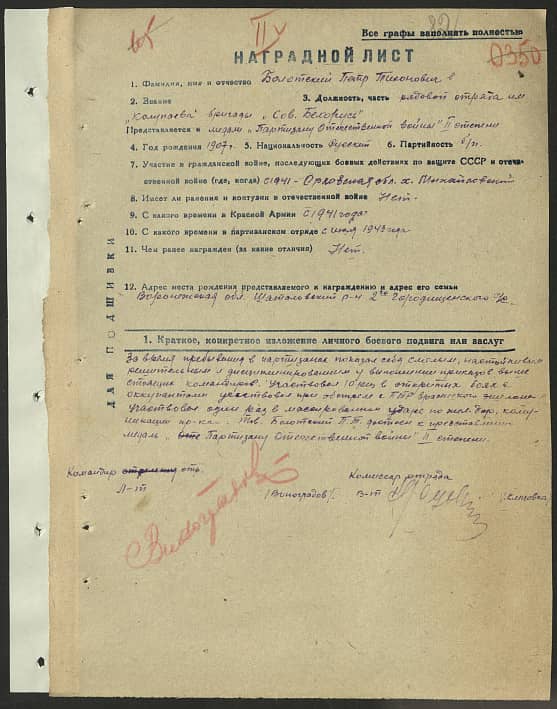 65
II
82
Все графы заполнять полностью
0350
НАГРАДНОЙ ЛИСТ
1. Фамилия, имя и отчество Болотский Петр Тихонович
2. Звание 3. Должность, часть рядовой отряда им
бригады „Сов. Белорусь"
Представляется к медали „Партизану Отечественной войны" II степени
4. Год рождения 1907г. 5. Национальность Русский 6. Партийность б/п.
7. Участие в гражданской войне, последующих боевых действиях по защите СССР и отече-
ственной войне (где, когда) с 1941 - Орловская обл. х. Михайловский
8. Имеет ли ранения и контузии в отечественной войне Нет.
9. С какого времени в Красной Армии с 1941 года
10. С какого времени в партизанском отряде с июля 1943 года
11. Чем ранее награжден (за какие отличия) Нет.
12. Адрес места рождения представляемого к награждению и адрес его семьи
Воронежская обл. Шаталовский р-н 2го Городищенского с/с
ДЛЯ ПОДШИВКИ
1. Краткое, конкретное изложение личного боевого подвига или заслуг
За время пребывания в партизанах показал себя смелым, настойчивым
решительным и дисциплинированным у выполнении приказов выше
стоящих командиров. Участвовал 10 раз в открытых боях с
оккупантами участвовал при обстреле вражеского эшелона
Участвовал один раз в массированном ударе по жел. дор. комму-
никации пр-ка. Тов. Болотский П.Т. достоин к представлению
медаль „Партизану Отечественной войны" II степени.
Командир отр. Комиссар отряда
Л-т /Виноградов/ В-т
Виноградов